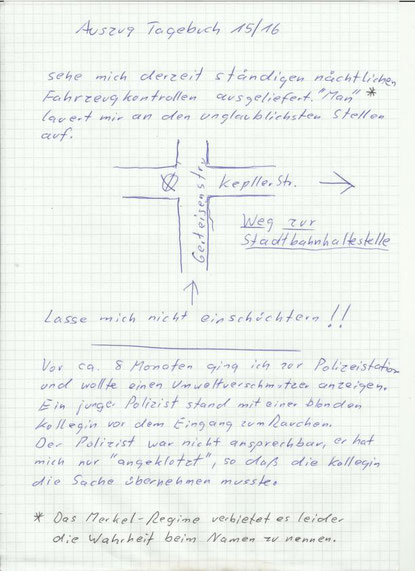 Auszug Tagebuch 15/16
sehe mich derzeit ständigen nächtlichen
Fahrzeugkontrollen ausgeliefert. "Man" *
lauert mir an den unglaublichsten Stellen
auf.
Kepller Str.
Gerteisenstr.
Weg zur
Stadtbahnhaltestelle
Lasse mich nicht einschüchtern!!
Vor ca. 8 Monaten ging ich zur Polizeistation
und wollte einen Umweltverschmutzer anzeigen.
Ein junger Polizist stand mit einer blonden
Kollegin vor dem Eingang zum Rauchen.
Der Polizist war nicht ansprechbar, er hat
mich nur "angeklotzt", so daß die Kollegin
die Sache übernehmen musste.
* Das Merkel-Regime verbietet es leider
die Wahrheit beim Namen zu nennen.